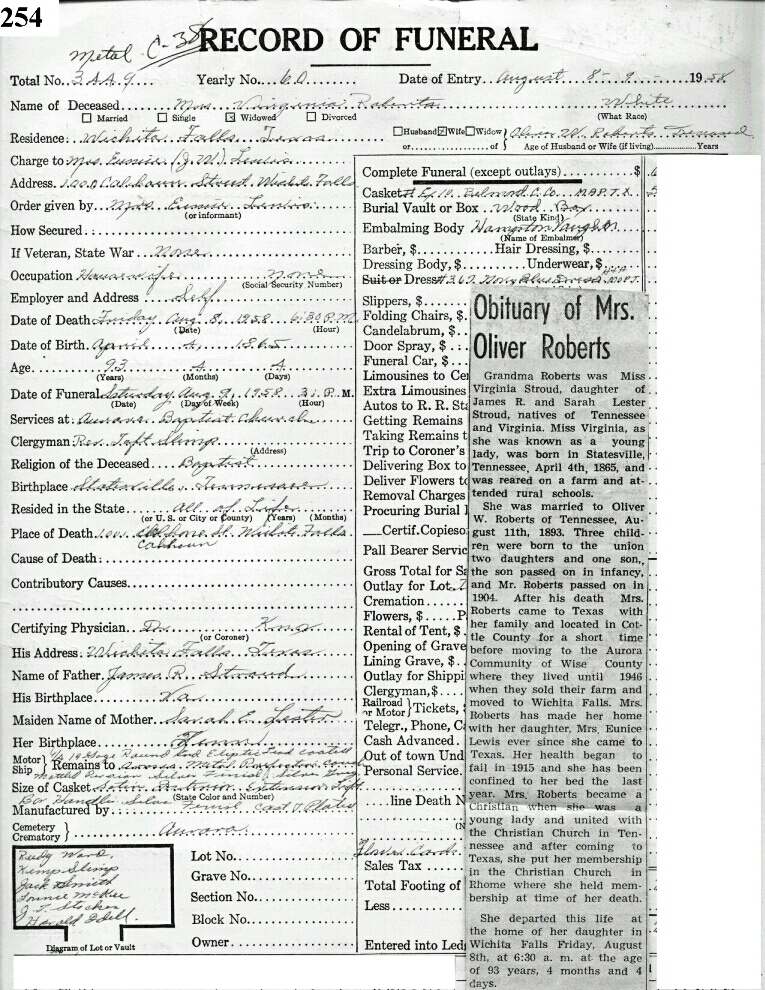 254
Metal C-38
RECORD OF FUNERAL
Total No. 3AA9 Yearly No. 60 Date of Entry August 8-9- 1958
Name of Deceased Mrs. Virginia Roberts White
☐ Married ☐ Single ☒ Widowed ☐ Divorced (What Race)
Residence: Wichita Falls, Texas ☐Husband ☒Wife ☐Widow Oliver W. Roberts
or of Age of Husband or Wife (if living) Years
Charge to Mrs. Eunice (J.W.) Lewis
Address 1000 Calhoun Street, Wichita Falls
Order given by Mrs. Eunice Lewis
(or informant)
How Secured:
If Veteran, State War None
Occupation Housewife none
(Social Security Number)
Employer and Address Self
Date of Death Friday Aug. 8, 1958 6:30 P.M.
(Date) (Hour)
Date of Birth April 4, 1865
Age 93 4 4
(Years) (Months) (Days)
Date of Funeral Saturday Aug. 9, 1958 3: P. M.
(Date) (Day of Week) (Hour)
Services at: Aurora Baptist Church
Clergyman Rev. Taft Slimp
(Address)
Religion of the Deceased Baptist
Birthplace Statesville, Tennessee
Resided in the State all of Life
(or U. S. or City or County) (Years) (Months)
Place of Death St. Wichita Falls
Calhoun
Cause of Death:
Contributory Causes
Certifying Physician Dr. King
(or Coroner)
His Address: Wichita Falls, Texas
Name of Father James R. Stroud
His Birthplace Va
Maiden Name of Mother Sarah E. Lester
Her Birthplace Tenn
Motor
Ship } Remains to
Size of Casket
(State Color and Number)
Manufactured by
Cemetery
Crematory } Aurora
Rudy Ward
Kemp Slimp
Jack Smith
Harold Idell
Diagram of Lot or Vault
Lot No.
Grave No.
Section No.
Block No.
Owner
Complete Funeral (except outlays) $
Casket # Ex 10, Belmont C. Co.
Burial Vault or Box Wood Box
(State Kind)
Embalming Body Hampton Vaughn
(Name of Embalmer)
Barber, $ Hair Dressing, $
Dressing Body, $ Underwear, $
Suit or Dress # 367 Navy Blue Dress
Slippers, $
Folding Chairs, $
Candelabrum, $
Door Spray, $
Funeral Car, $
Limousines to Ce
Extra Limousines
Autos to R. R. Sta
Getting Remains
Taking Remains t
Trip to Coroner's
Delivering Box to
Deliver Flowers to
Removal Charges
Procuring Burial
Certif. Copies o
Pall Bearer Servic
Gross Total for Sa
Outlay for Lot
Cremation
Flowers, $ P
Rental of Tent, $
Opening of Grave
Lining Grave, $
Outlay for Shippi
Clergyman, $
Railroad
or Motor } Tickets,
Telegr., Phone, C
Cash Advanced
Out of town Und
Personal Service
line Death N
(N
Flower Cards
Sales Tax
Total Footing of
Less
Entered into Led
Obituary of Mrs.
Oliver Roberts
Grandma Roberts was Miss
Virginia Stroud, daughter of
James R. and Sarah Lester
Stroud, natives of Tennessee
and Virginia. Miss Virginia, as
she was known as a young
lady, was born in Statesville,
Tennessee, April 4th, 1865, and
was reared on a farm and at-
tended rural schools.
She was married to Oliver
W. Roberts of Tennessee, Au-
gust 11th, 1893. Three child-
ren were born to the union
two daughters and one son,
the son passed on in infancy,
and Mr. Roberts passed on in
1904. After his death Mrs.
Roberts came to Texas with
her family and located in Cot-
tle County for a short time
before moving to the Aurora
Community of Wise County
where they lived until 1946
when they sold their farm and
moved to Wichita Falls. Mrs.
Roberts has made her home
with her daughter, Mrs. Eunice
Lewis ever since she came to
Texas. Her health began to
fail in 1915 and she has been
confined to her bed the last
year. Mrs. Roberts became a
Christian when she was a
young lady and united with
the Christian Church in Ten-
nessee and after coming to
Texas, she put her membership
in the Christian Church in
Rhome where she held mem-
bership at time of her death.
She departed this life at
the home of her daughter in
Wichita Falls Friday, August
8th, at 6:30 a. m. at the age
of 93 years, 4 months and 4
days.